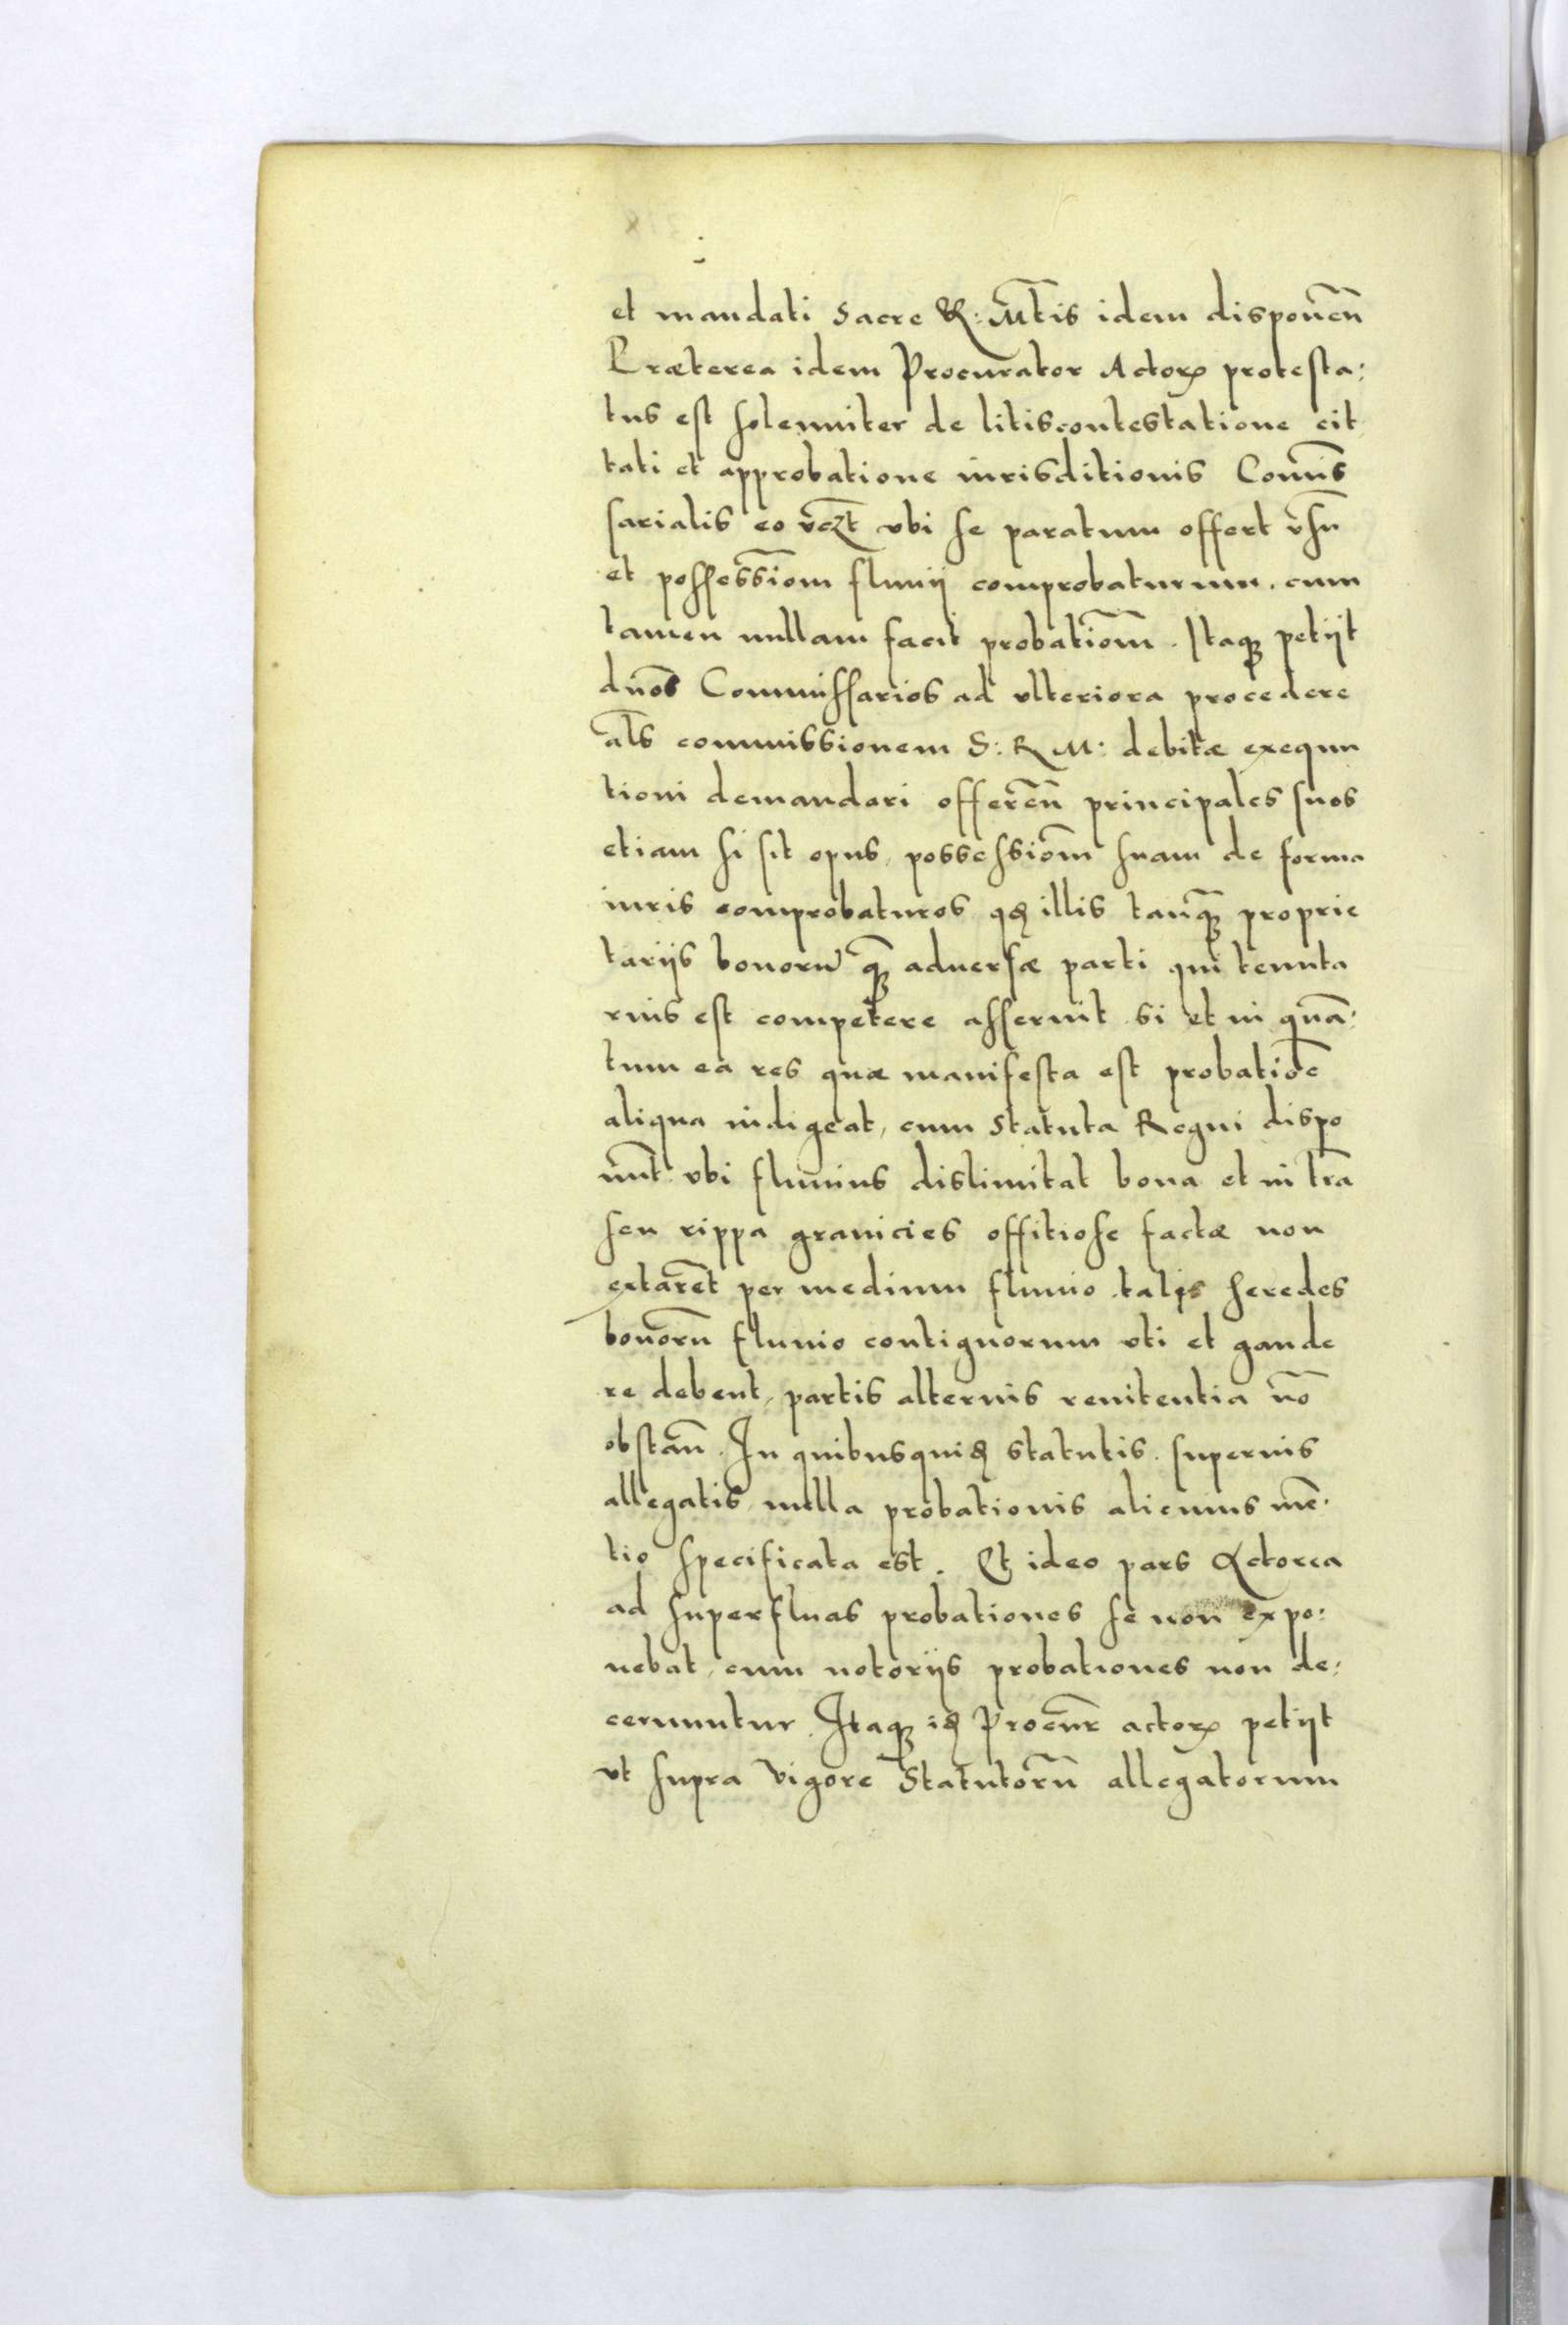 et mandati Sacre R: Mt̃is idem disponen̄
Præterea idem Procurator Actorꝝ protesta:
tus est solenniter de litiscontestatione cit
tati et approbatione iurisditionis Com̃is
sarialis eo vꝫt vbi se paratum offert vsũ
et possessiom̃ fluuij comprobaturum. cum
tamen nullam facit probatiom̃. Itaqꝫ petijt
dnos̃ Commissarios ad vlteriora procedere
al̃s commissionem S: R M: debitæ exequu
tioni demandari offeren̄ principales suos
etiam si sit opus, possessiom̃ suam de forma
iuris comprobaturos qꝫ illis tanqꝫ proprie
tarijs bonorũ qꝫ aduersæ parti qui tenuta
rius est competere asseruit si et in quã:
tum ea res quæ manifesta est probatiõe
aliqua indigeat, cum Statuta Regni dispo
nũt vbi fluuius dislimitat bona et in tr̃a
seu rippa granicies offitiose factæ non
extarẽt per medium fluuio talis heredes
bonorũ fluuio contiguorum vti et gaude
re debent, partis alterius renitentia nõ
obstan̄. In quibusquiꝫ statutis superius
allegatis nulla probationis alicuius mẽ:
tio specificata est. Et ideo pars Actorea
ad superfluas probationes se non expo:
nebat, cum notorijs probationes non de:
cernuntur. Itaqꝫ iꝫ Procur̃ actorꝝ petijt
vt supra vigore Statutorũ allegatorum